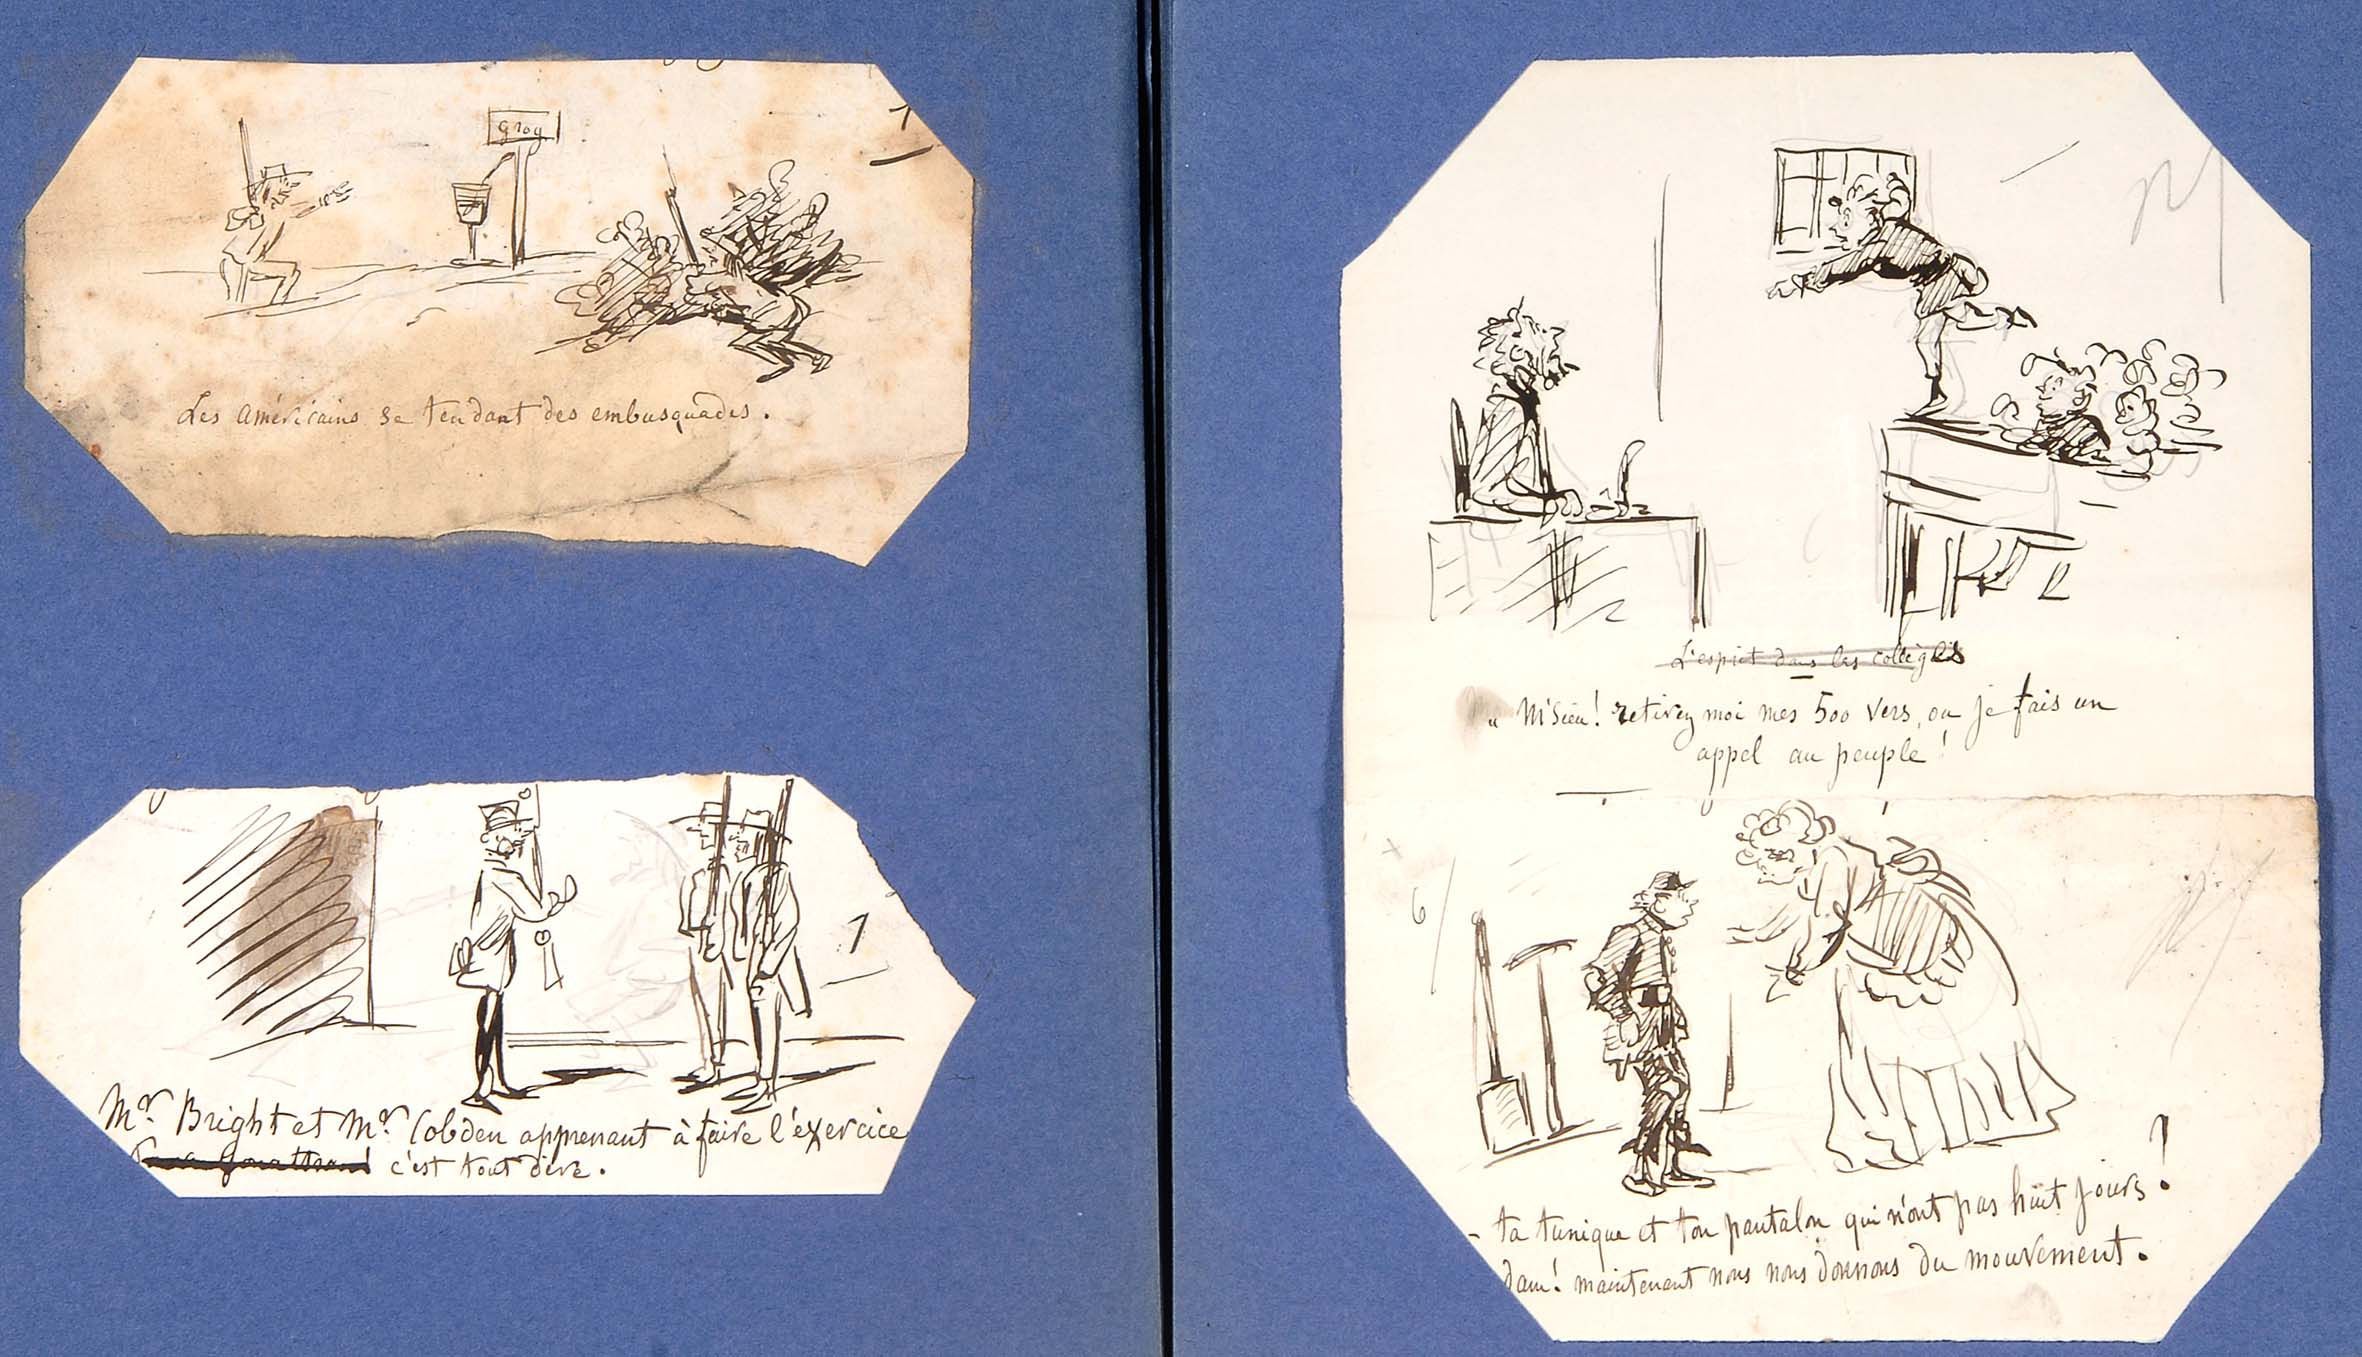 1
grog
Les américains se tendant des embusquades.
1
Mr Bright et Mr Cobden apprenant à faire l'éxercice
c'est tout dire.
M
L'esprit dans les collèges
" M'sieu! retirez moi mes 500 vers, ou je fais un
appel au peuple!
6
- ta tunique et ton pantalon qui n'ont pas huit jours?
dam! maintenant nous nous donnons du mouvement.